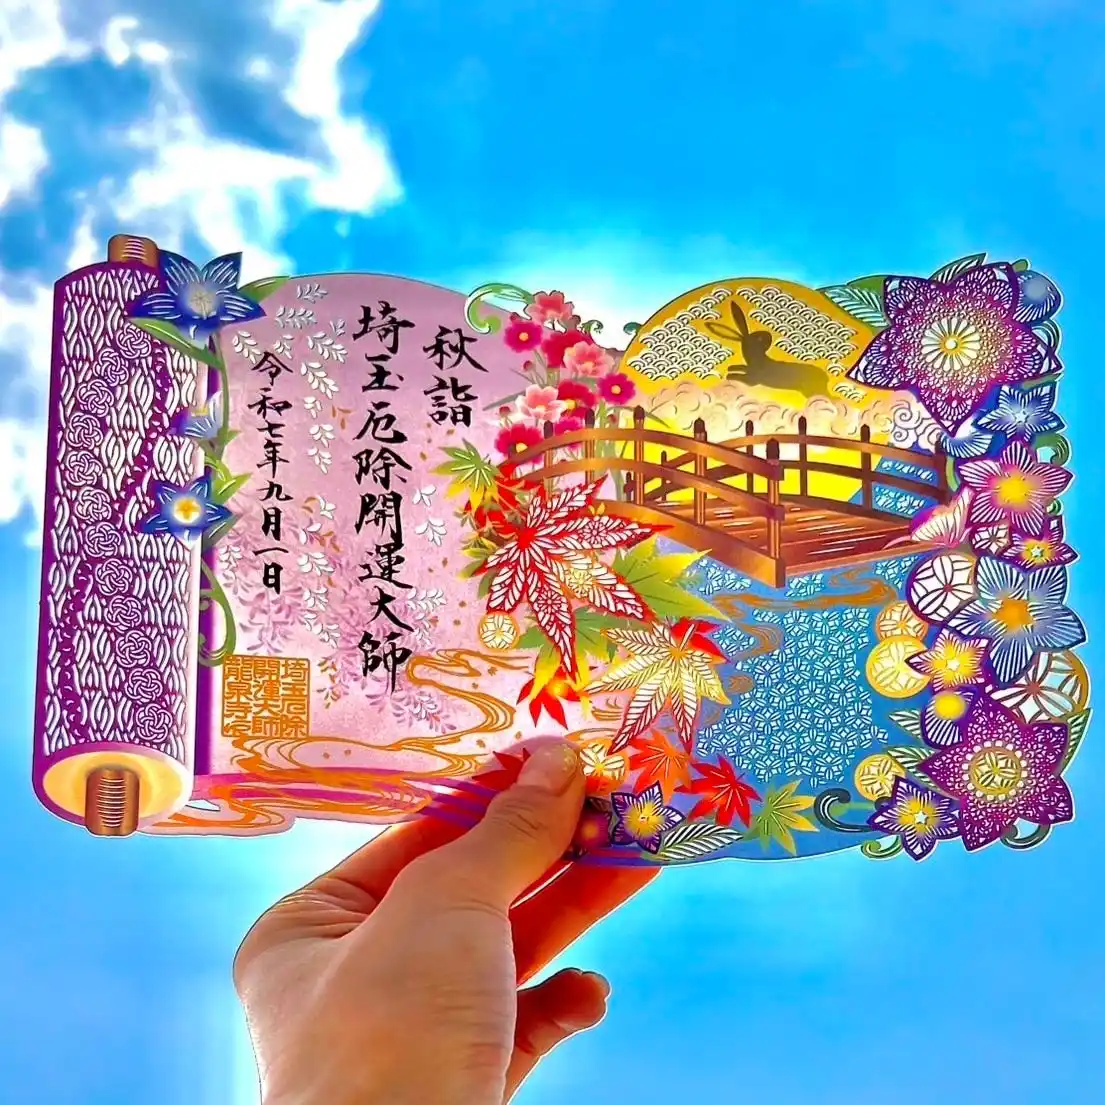 秋詣
埼玉厄除開運大師
令和七年九月一日
埼玉厄除
開運大師
龍泉寺印